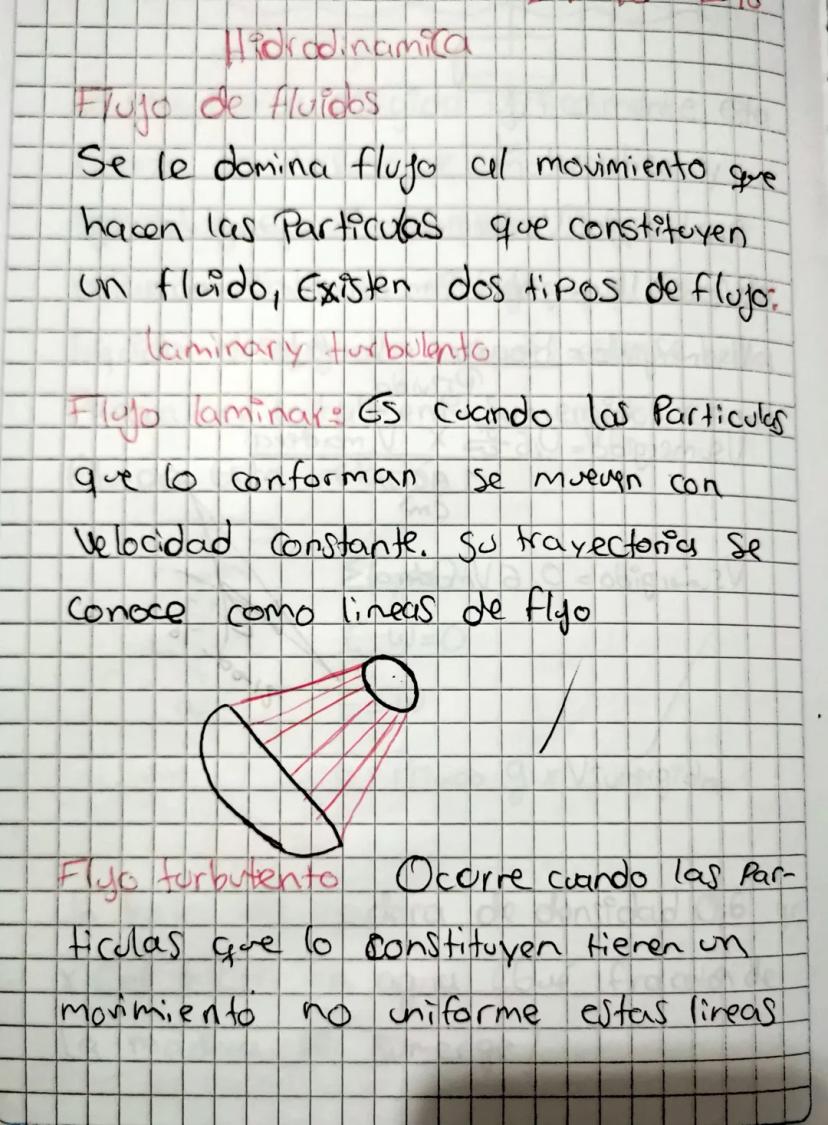 Hidrodinamica
Flujo de fluidos
Se le domina flujo al movimiento que
hacen las Particulas que constituyen
un fluido, Existen dos tipos de flujo:
laminar y turbulento
Flujo laminar: Es cuando las Particulas
que lo conforman se mueven con
velocidad constante. su trayectoria se
conoce como lineas de flujo
Flujo turbulento Ocorre cuando las Par-
ticulas que lo constituyen tienen un
movimiento no uniforme estas lineas